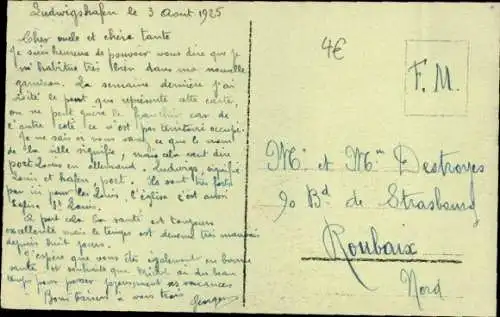 Ludwigshafen le 3 Aout 1925
Cher oncle et chère tante
Je suis heureux de pouvoir vous dire que je
m'habitue très bien dans ma nouvelle
garnison. La semaine dernière j'ai
visité le pont que représente cette carte,
on ne peut guère le franchir car de
l'autre coté ce n'est pas territoire occupé.
Je ne sais si vous savez ce que le nom
de la ville signifie, mais cela veut dire
port Louis en allemand. Ludwigs, signifie
Louis et hafen, port. Ils sont très forts
par ici pour les Louis, l'église c'est aussi
l'église St Louis.
A part cela la santé est toujours
excellente mais le temps est devenu très mauvais
depuis huit jours.
J'espère que vous êtes également en bonne
santé et souhaite que ai du beau
temps pour passer joyeusement ses vacances
Bons baisers à vous trois
Georges
4€
F. M.
Mr et Mme Destroyes
90 Bd de Strasbourg
Roubaix
Nord